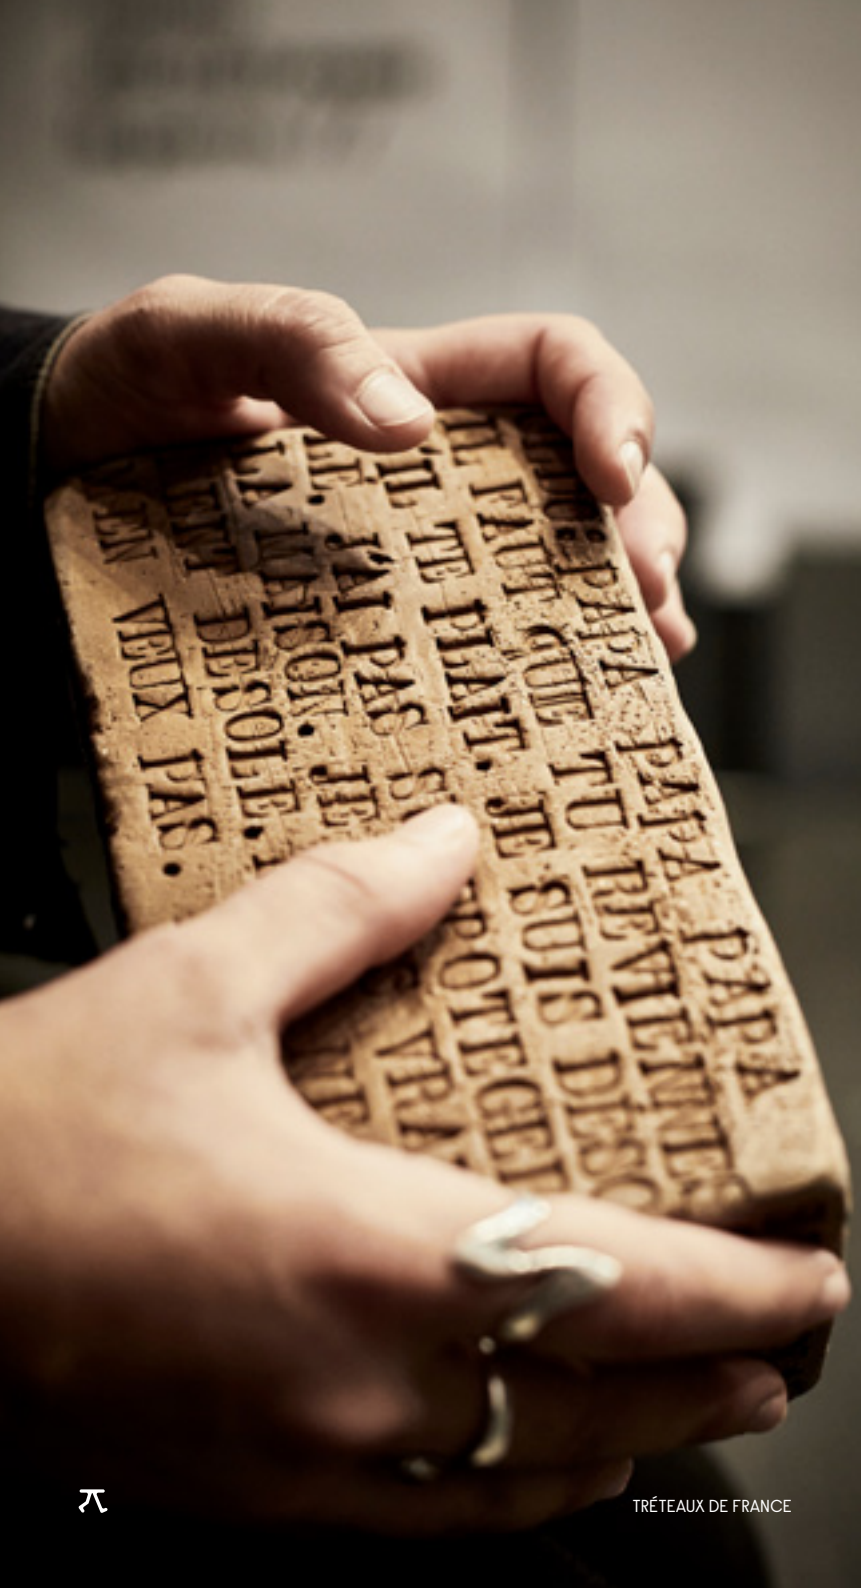 PAPA PAPA PAPA
IL FAUT QUE TU REVIENNES
IL TE PLAIT. JE SUIS DÉSO
LE. J'AI PAS
LA MAISON. JE VRA
DESOLE.
M'EN VEUX PAS.
TRÉTEAUX DE FRANCE